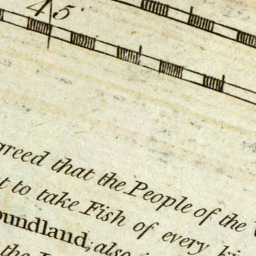 45
agreed that the People of the
to take Fish of every
oundland; also
the